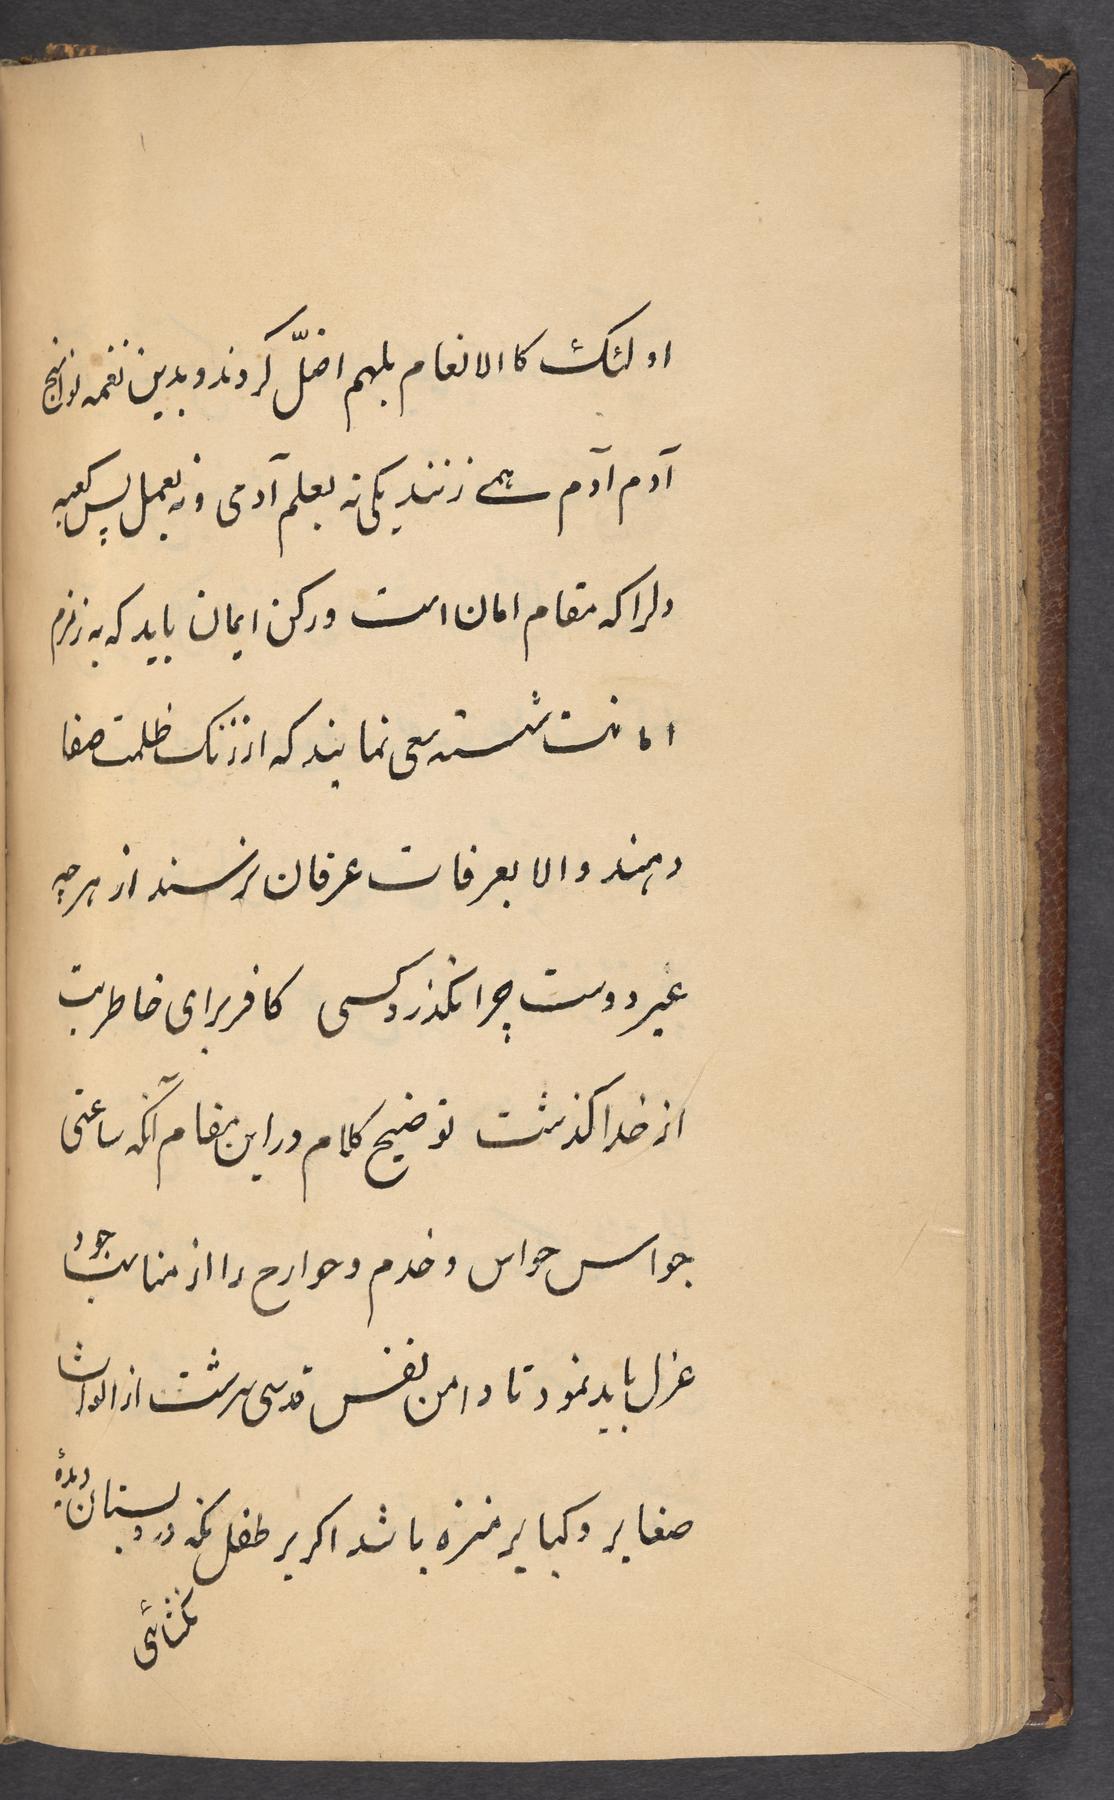 اولئک کا الانعام بلهم اضلّ کردند و بدین نغمه نواسنج
آدم آدم همے زنند یکی نه بعلم آدمی و نه بعمل پس کعبه
دلرا که مقام امان است و رکن ایمان باید که به زمزم
امانت شسته سعی نمایند که از زنک ظلمت صفا
دهند و الا بعرفات عرفان نرسند از هر چه
غیر دوست چرا نکذرد کسی کافر برای خاطر بت
از خدا کذشت توضیح کلام در این مقام آنکه ساعتی
جواسس حواس و خدم و جوارح را از مناسب خود
عزل باید نمود تا دامن نفس قدسی سرشت از الواث
صغایر و کبایر منزه باشد اکر بر طفل نکه در دبستان دیدهٔ
نکشائی